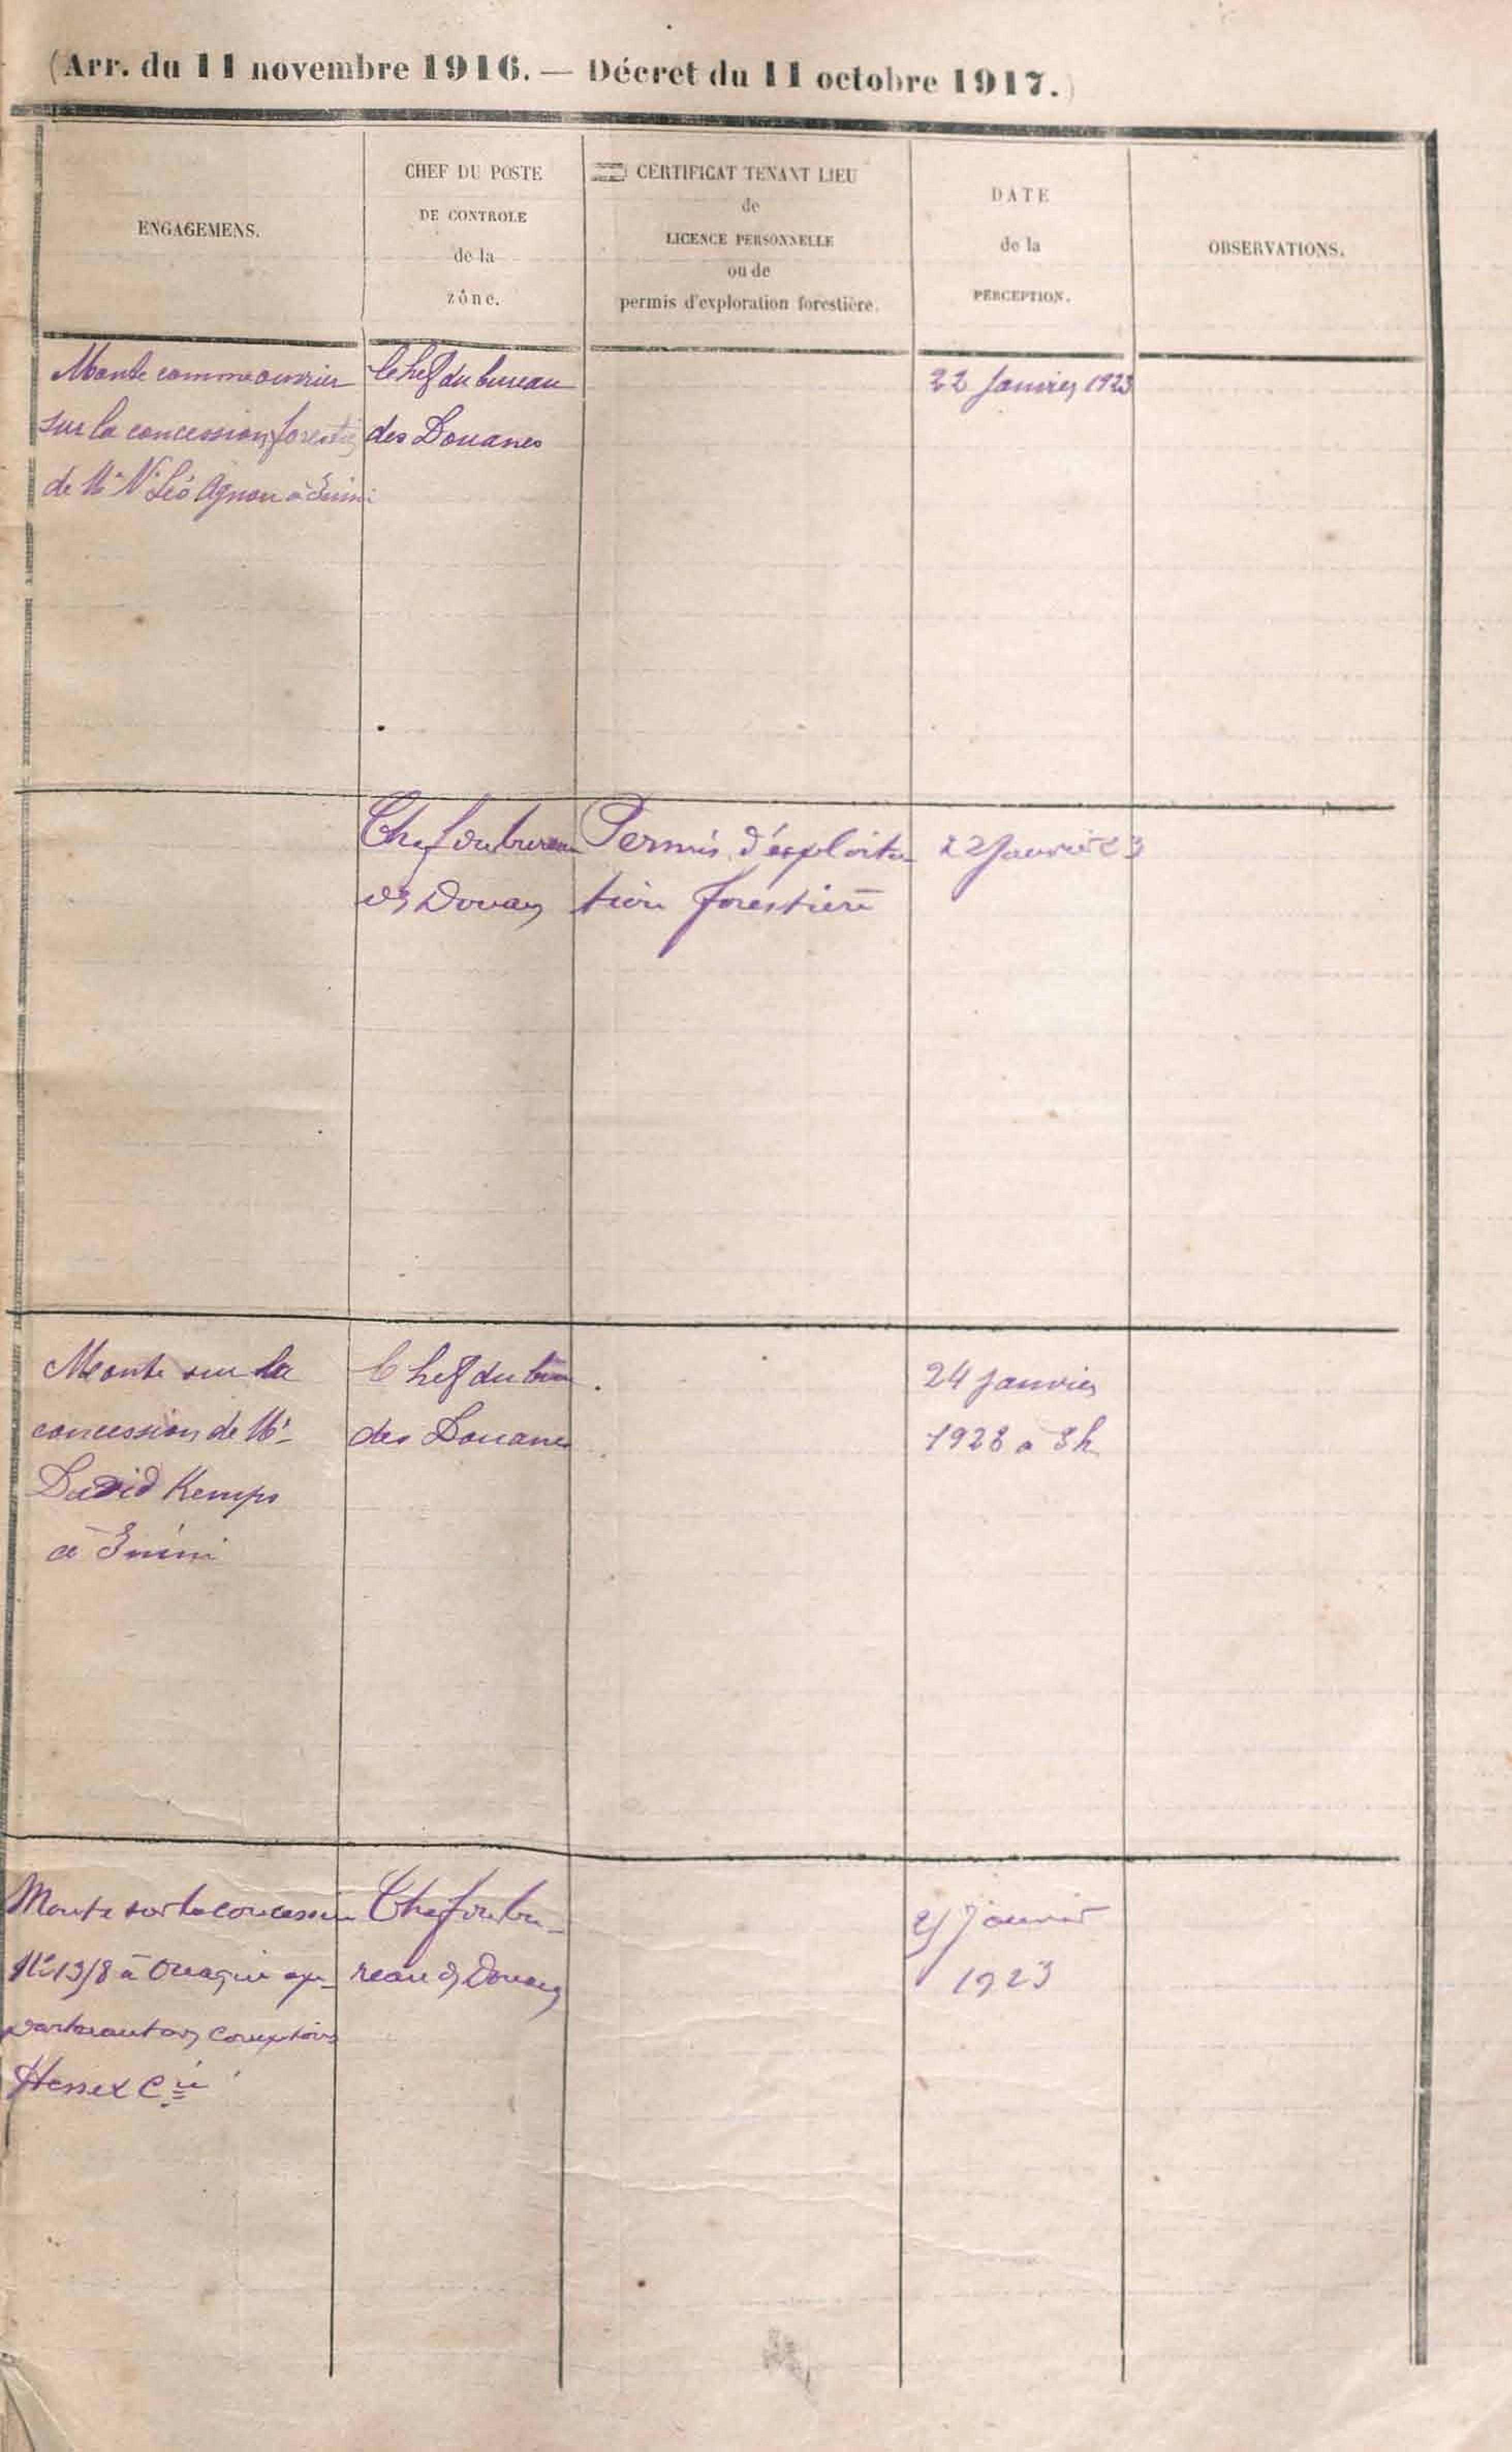 (Arr. du 11 novembre 1916. — Décret du 11 octobre 1917.)
ENGAGEMENS.
CHEF DU POSTE
DE CONTROLE
de la
zône.
CERTIFICAT TENANT LIEU
de
LICENCE PERSONNELLE
ou de
permis d'exploration forestière.
DATE
de la
PERCEPTION.
OBSERVATIONS.
Monte comme ouvrier
sur la concession
de Mr Léo Agnon à
Chef du bureau
des Douanes
22 Janvier 1923
Chef du bureau
des Douanes
Permis d'exploita
tion forestière
22 Janvier 23
Monte sur la
concession de Mr
David Kemps
à
Chef du
des Douanes
24 Janvier
1923 à 3h
Monte sur la concession
à ap-
partenant aux Comptoirs
Cie
Chef du bu-
reau des Douanes
Janvier
1923